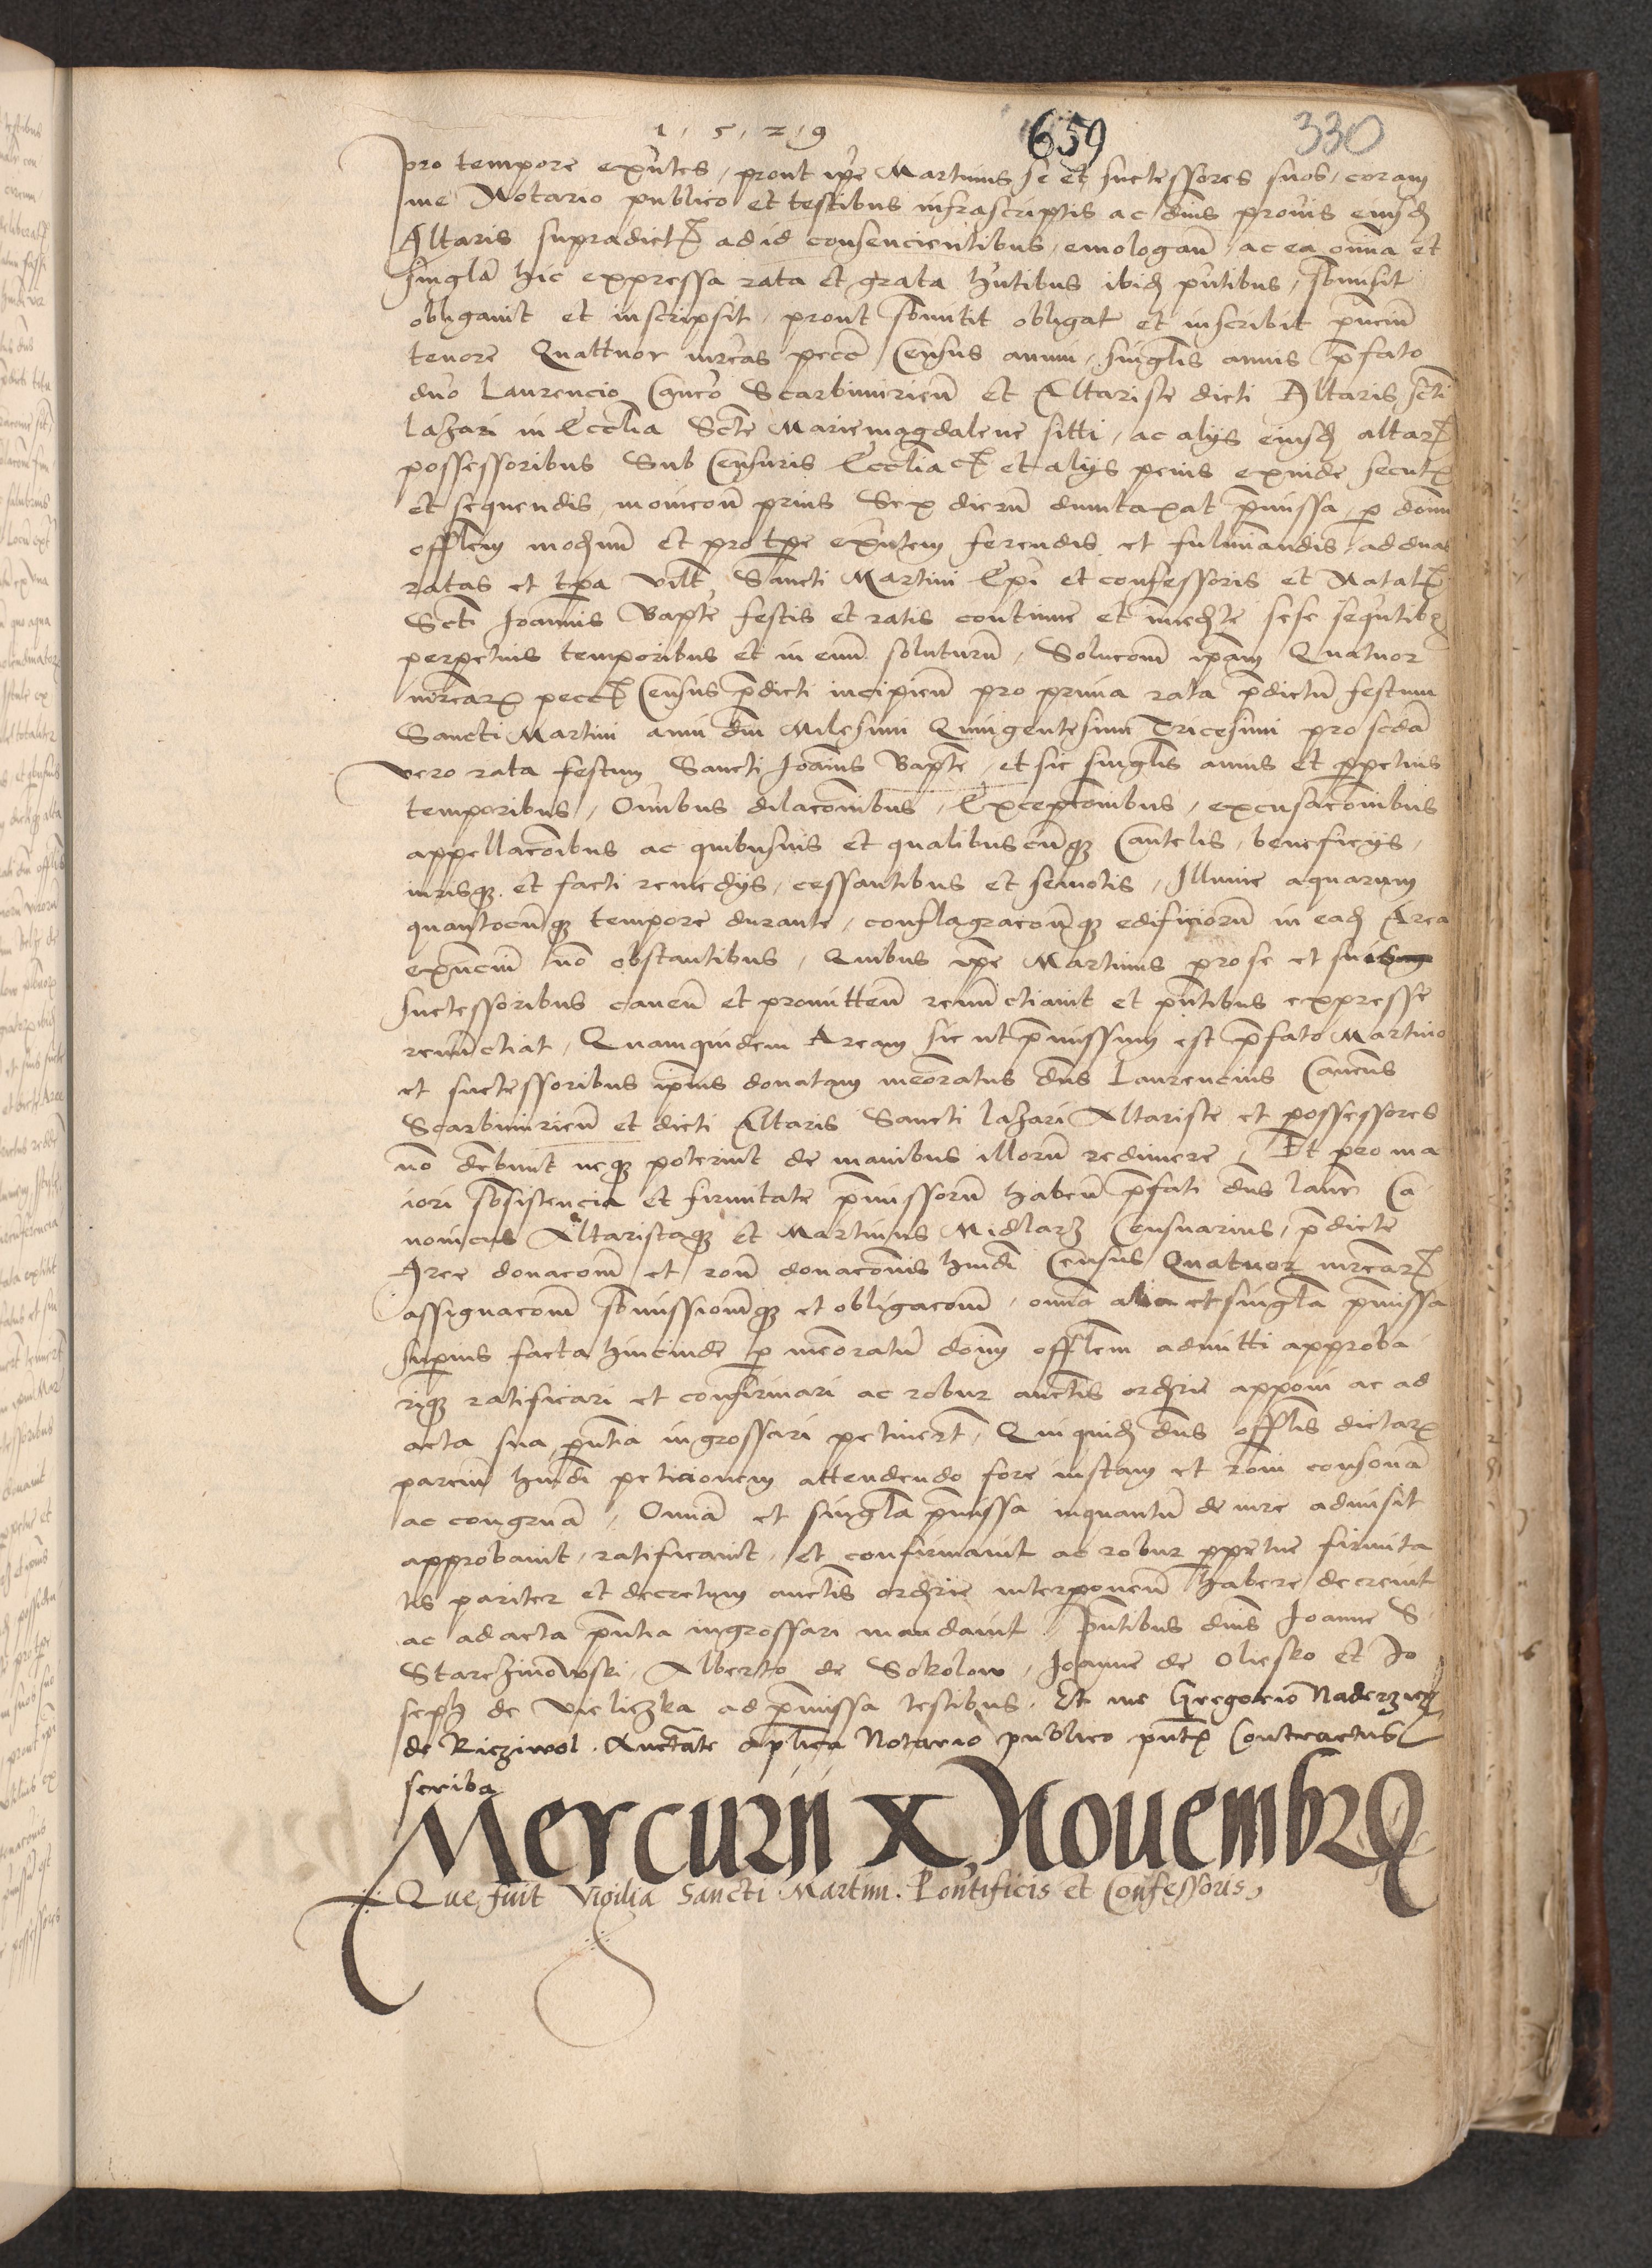 1 5 2 9
659
330
pro tempore exn̄tes, prout ip̄e Martinus se et successores suos, coram
me Notario publico et testibus infrascriptis ac dn̄is prouis eiusd
Altaris supradict ad id consencientibus, emologan̄, ac ea om̄ia et
singla hic expressa rata et grata hn̄tibus ibid pn̄tibus, sb̄misit
obligauit et inscripsit, prout sb̄mitit obligat et inscribit pn̄ciu
tenore Quattuor mrcas pecc Census annui, singlis annis p̄fato
dn̄o Laurencio Canco Scarbimirien̄ et Altariste dicti Altaris scti
Lazari in Ecclia Scte Mariemagdalene sitti, ac alijs eiusd altar
possessoribus Sub Censuris Ecclīact et alijs penis exinde secut
et sequendis, monicon̄ prius Sex dierū dumtaxat p̄missa, p domū
offlem modernū et pro tpe exn̄tem ferendis et fulminandis, ad duas
ratas et tpa vidlt Sancti Martini Epi et confessoris et Natal
Scti Joannis Bapte festis et ratis continue et immedte sese sequn̄tib
perpetuis temporibus et in euū soluturū, Solucom̄ ipam Quatuor
mrcar pecct Census p̄dicti incipien̄ pro prima rata p̄dictū festum
Sancti Martini anni dn̄i Milesimi Quingentesimi Tricesimi pro scda
vero rata festum Sancti Joān̄is Bapte, et sic singlis annis et ppetuis
temporibus, Omībus dilacōnibus, Excepcōnibus, excusacōnibus
appellacōibus ac quibusuis et qualibuscūnq Cautelis, beneficijs,
iurisq et facti remedijs, cessantibus et semotis, Illuuie aquarum
quantocūnq tempore durante, conflagracōnq edificiorū in ead Area
exn̄ciū nō obstantibus, Quibus ip̄e Martinus pro se et suis
successoribus cauen̄ et promitten̄ renunctiauit et pn̄tibus expresse
renunctiat, Quamquidem Aream sic ut p̄missum est p̄fato Martino
et successoribus ip̄ius donatam memoratus dn̄s Laurencius Cancus
Scarbimirien̄ et dicti Altaris Sancti Lazari Altariste et possessores
nō debunt neq poterint de manibus illorū redimere, Et pro ma
iori sb̄sistencia et firmitate p̄missorū haben̄ p̄fati dn̄s Laure Ca
nonicus Altaristaq et Martinus Midlarz Censuarius, p̄dicte
Aree donacōm et ron̄ donacōnis hmōi Census Quatuor mrcar
assignacōm sb̄missiomq et obligacōm, om̄ia alia et singla p̄missa
superius facta hincinde p memoratū dom̄ offlem admitti approba
riq ratificari et confirmari ac robur auctis ordrie apponi ac ad
acta sua pn̄tia ingrossari petinert, Quiquid dn̄s offlis dictar
parciū hmōi peticionem attendendo fore iustam et rōni consonā
ac congruā, Om̄ia et singla p̄missa inquantū de iure admisit
approbauit, ratificauit, et confirmauit ac robur ppetue firmita
tis pariter et decretum auctis ordrie interponen̄ habere decreuit
ac ad acta pn̄tia ingrossari mandauit, Pn̄tibus dn̄is Joanne S
Starczinowski, Alberto de Sokolow, Joanne de Oliesko et Jo
seph de Vieliczka ad p̄missa testibus. Et me Gregorio Naderzicz
de Ricziwol. Auctate aplica Notario publico pn̄t Contractus
scriba
Mercurii X Nouembr
Que fuit Vigilia Sancti Martini. Pontificis et Confessoris,